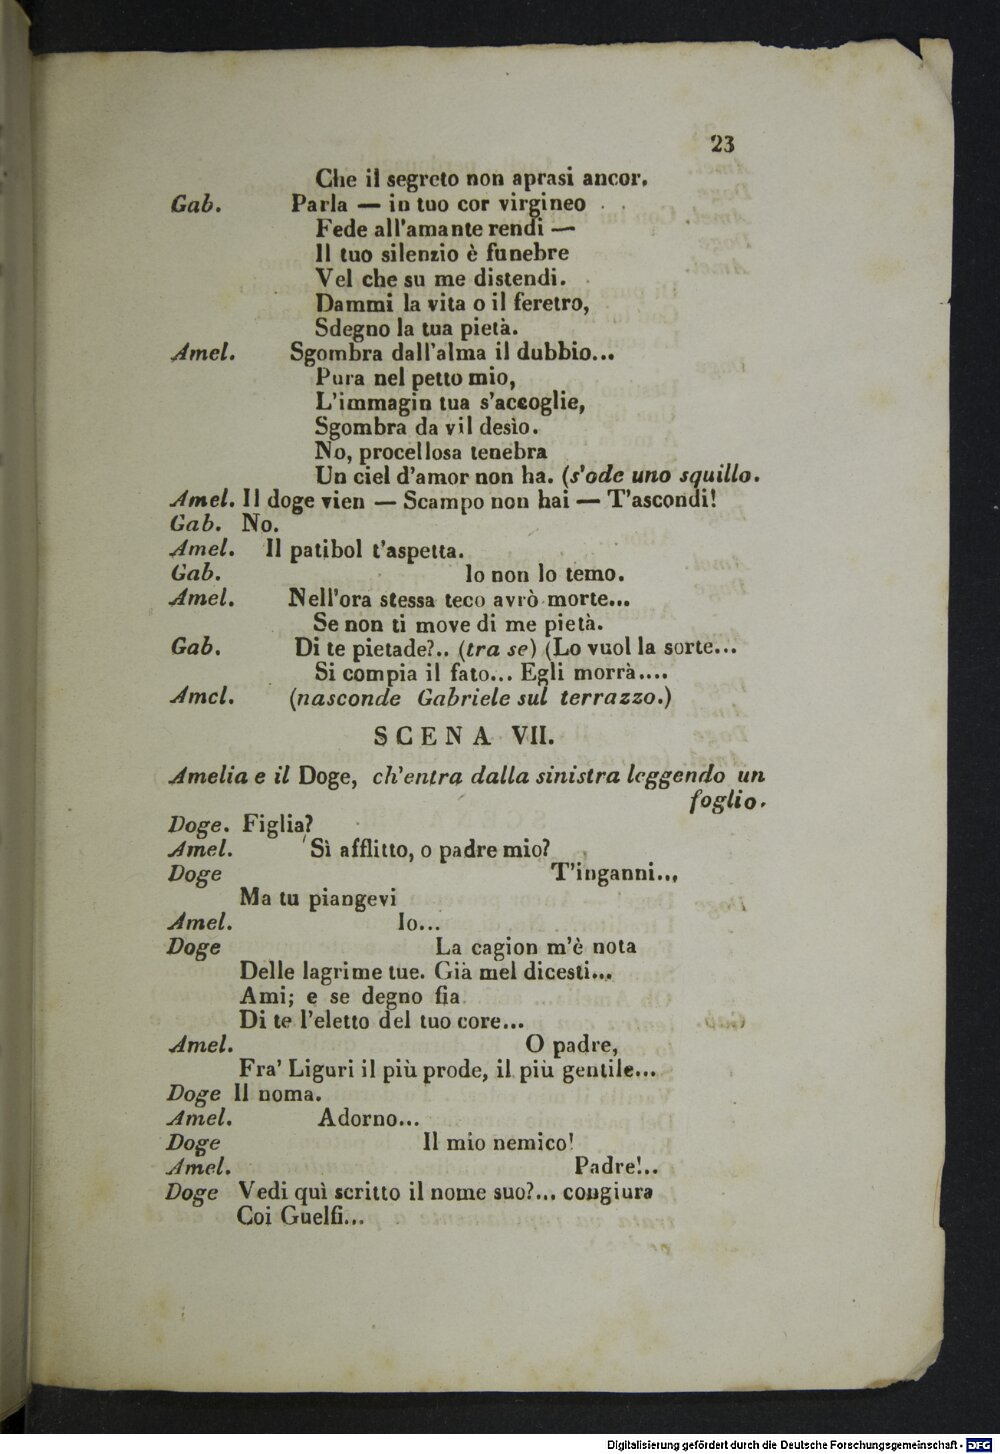 23
Che il segreto non aprasi ancor.
Gab. Parla — in tuo cor virgineo
Fede all'amante rendi —
Il tuo silenzio è funebre
Vel che su me distendi.
Dammi la vita o il feretro,
Sdegno la tua pietà.
Amel. Sgombra dall'alma il dubbio...
Pura nel petto mio,
L'immagin tua s'accoglie,
Sgombra da vil desìo.
No, procellosa tenebra
Un ciel d'amor non ha. (s'ode uno squillo.
Amel. Il doge vien — Scampo non hai — T'ascondi!
Gab. No.
Amel. Il patibol t'aspetta.
Gab. Io non lo temo.
Amel. Nell'ora stessa teco avrò morte...
Se non ti move di me pietà.
Gab. Di te pietade?.. (tra se) (Lo vuol la sorte...
Si compia il fato... Egli morrà....
Amel. (nasconde Gabriele sul terrazzo.)
SCENA VII.
Amelia e il Doge, ch'entra dalla sinistra leggendo un
foglio.
Doge. Figlia?
Amel. Sì afflitto, o padre mio?
Doge T'inganni...
Ma tu piangevi
Amel. Io...
Doge La cagion m'è nota
Delle lagrime tue. Già mel dicesti...
Ami; e se degno fia
Di te l'eletto del tuo core...
Amel. O padre,
Fra' Liguri il più prode, il più gentile...
Doge Il noma.
Amel. Adorno...
Doge Il mio nemico!
Amel. Padre!..
Doge Vedi quì scritto il nome suo?... congiura
Coi Guelfi...
Digitalisierung gefördert durch die Deutsche Forschungsgemeinschaft - DFG